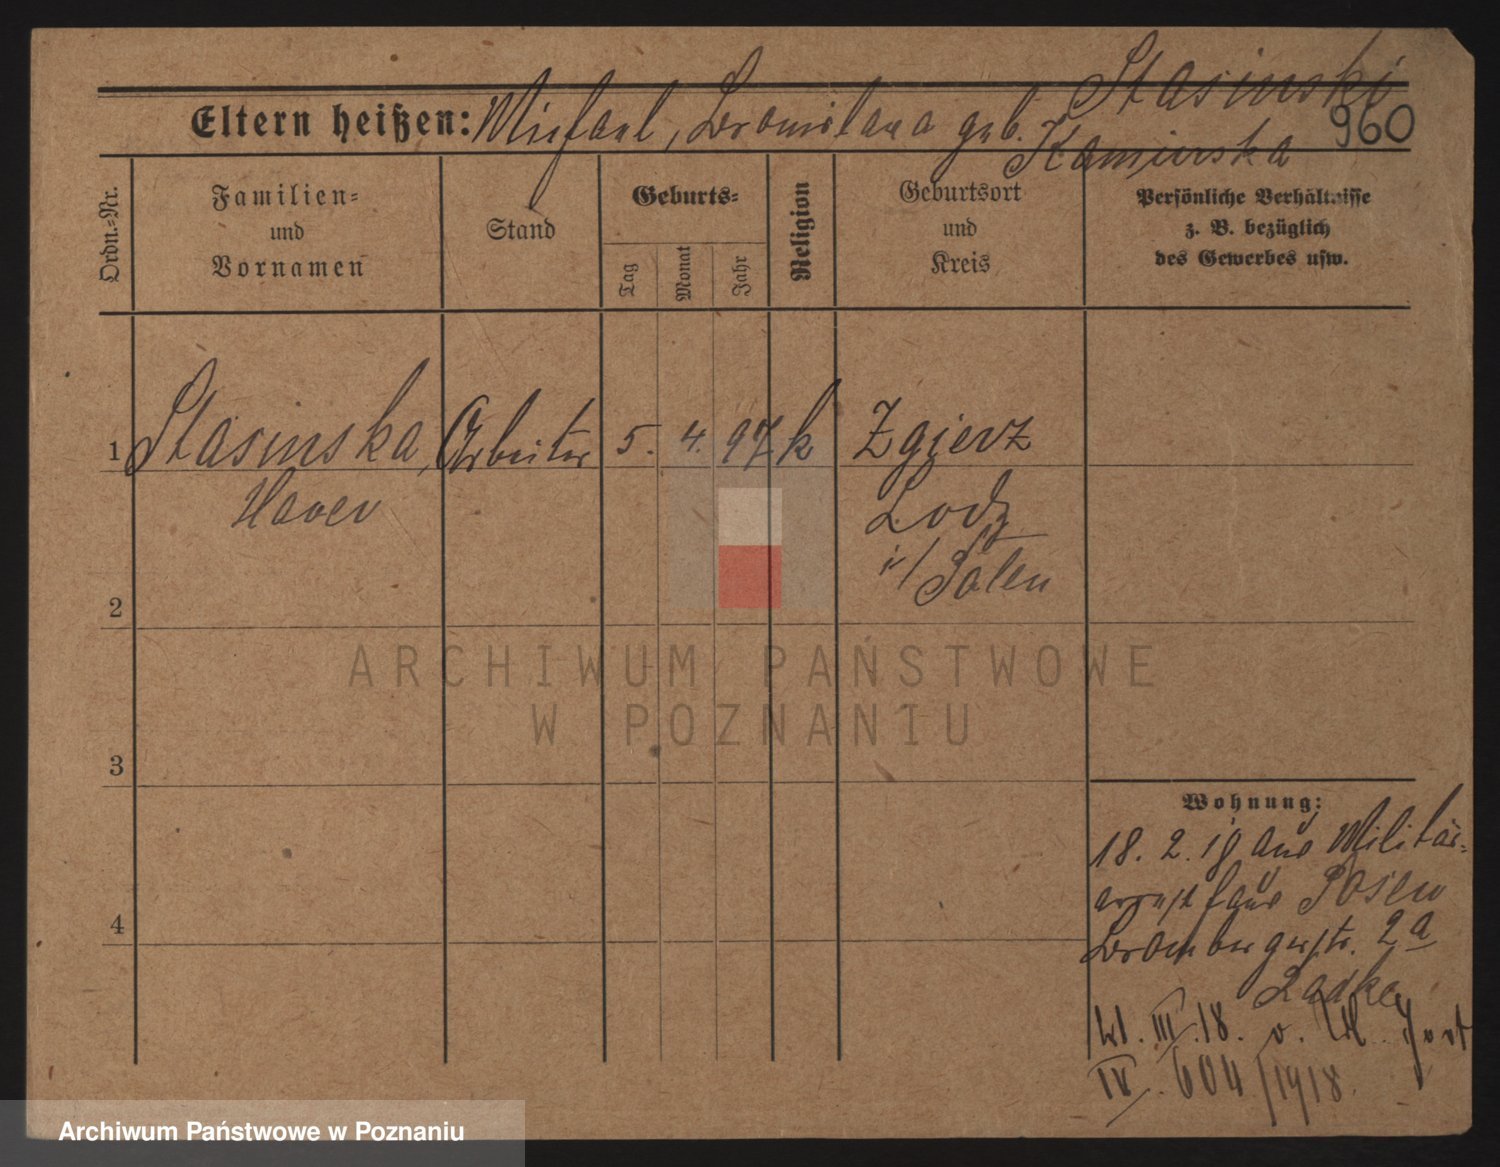 Stasinski
Eltern heißen: Michael, Bronislawa geb. Kaminska
960
Ordn.-Nr.
Familien-
und
Vornamen
Stand
Geburts-
Tag
Monat
Jahr
Religion
Geburtsort
und
Kreis
Persönliche Verhältnisse
z. B. bezüglich
des Gewerbes usw.
1 Stasinska, Arbeiter 5. 4. 97 k Zgierz
Lodz
i/ Polen
2
3
4
Wohnung:
18. 2. 18 aus Militär-
arrest aus Posen
Brombergerstr. 2a
Radke
21. III. 18. v. fort
IV. 604/1918.
ARCHIWUM PAŃSTWOWE
W POZNANIU
Archiwum Państwowe w Poznaniu